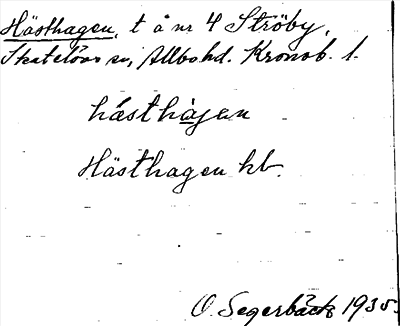 Hästhagen, t å nr 4 Ströby,
Skatelövs sn, Allbo hd. Kronob. l.
hásthàgan
Hästhagen kb.
O. Segerbäck 1935.